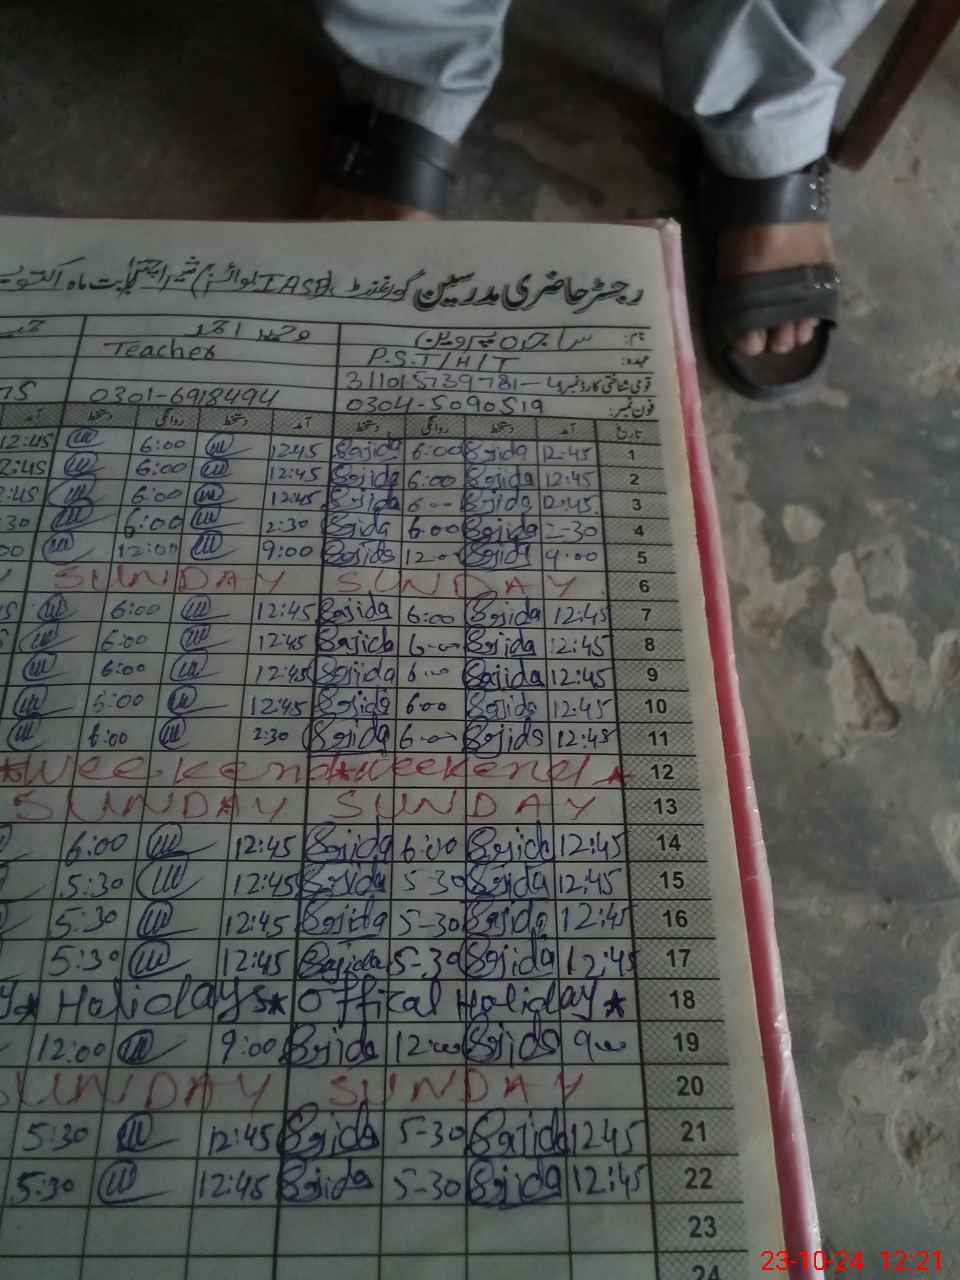 رجسٹر حاضری مدرسین گورنمنٹ (IASP) بابت ماہ اکتوبر
نام:
عہدہ: P.S.T/H/T Teacher
قومی شناختی کارڈ نمبر
فون نمبر: 0304-5090519 0301-6918494
تاریخ آمد دستخط روانگی دستخط آمد دستخط روانگی دستخط آمد
1 12:45 Sajida 6:00 Sajida 12:45 6:00 12:45
2 12:45 Sajida 6:00 Sajida 12:45 6:00 2:45
3 12:45 Sajida 6:00 Sajida 12:45 6:00 2:45
4 2-30 Sajida 6:00 Sajida 2:30 6:00 :30
5 9:00 Sajida 12:00 Sajida 9:00 12:00 00
6 SUNDAY SUNDAY
7 12:45 Sajida 6:00 Sajida 12:45 6:00
8 12:45 Sajida 6:00 Sajida 12:45 6:00
9 12:45 Sajida 6:00 Sajida 12:45 6:00
10 12:45 Sajida 6:00 Sajida 12:45 6:00
11 12:45 Sajida 6:00 Sajida 2:30 6:00
12 weekend★weekend★
13 SUNDAY SUNDAY
14 12:45 Sajida 6:00 Sajida 12:45 6:00
15 12:45 Sajida 5-30 Sajida 12:45 5:30
16 12:45 Sajida 5-30 Sajida 12:45 5:30
17 12:45 Sajida 5-30 Sajida 12:45 5:30
18 y★Holidays★Offical Holiday★
19 9:00 Sajida 12:00 Sajida 9:00 12:00
20 SUNDAY SUNDAY
21 1245 Sajida 5-30 Sajida 12:45 5:30
22 12:45 Sajida 5-30 Sajida 12:45 5:30
23
24
23-10-24 12:21